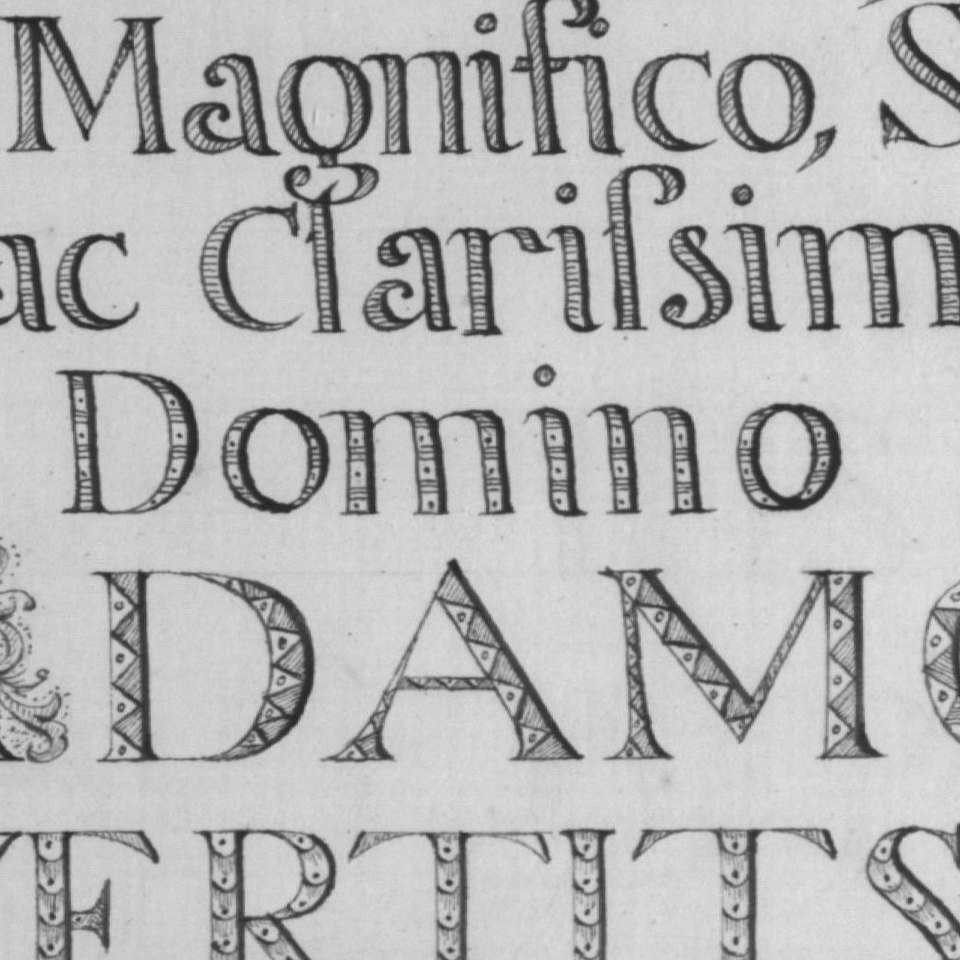 Magnifico, S
ac Clariſsim
Domino
ADAMO
ERTITS